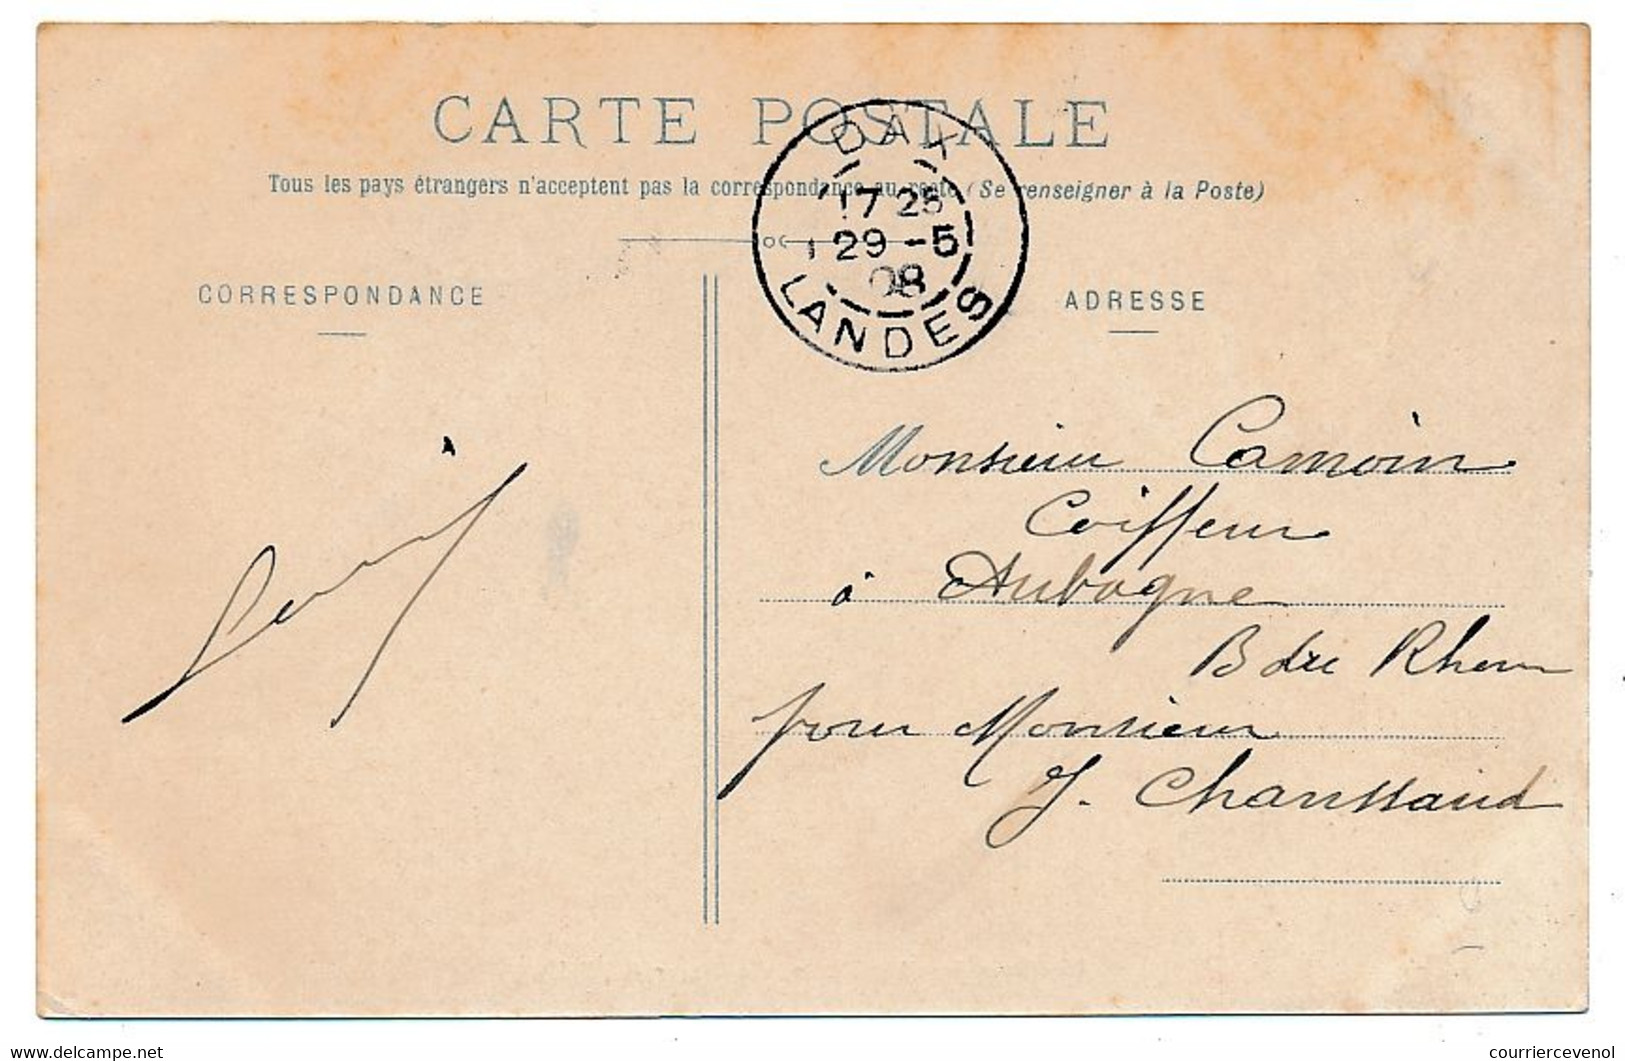 CARTE POSTALE
Tous les pays étrangers n'acceptent pas la correspondance au recto (Se renseigner à la Poste)
DAX
17 25
29 -5
08
LANDES
CORRESPONDANCE
ADRESSE
Monsieur Camoin
Coiffeur
à Aubagne
B du Rhone
pour Monsieur
J. Chaussaud
www.delcampe.net
courriercevenol